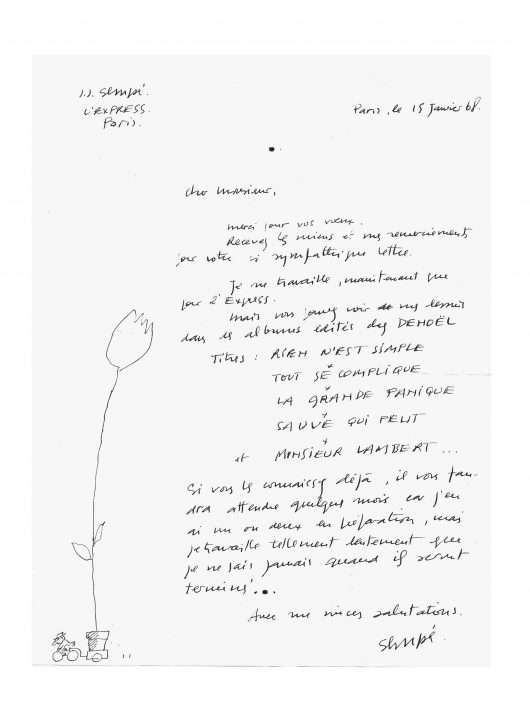 J.J. Sempé.
L'EXPRESS.
Paris.
Paris, le 15 Janvier 68.
Cher Monsieur,
merci pour vos vœux.
Recevez les miens et mes remerciements
pour votre si sympathique lettre.
Je ne travaille, maintenant que
pour l'Express.
Mais vous pouvez voir de mes dessins
dans les albums édités chez DENOËL
Titres : RIEN N'EST SIMPLE
TOUT SE COMPLIQUE
LA GRANDE PANIQUE
SAUVE QUI PEUT
et MONSIEUR LAMBERT...
Si vous les connaissez déjà, il vous fau-
dra attendre quelques mois car j'en
ai un ou deux en préparation, mais
je travaille tellement lentement que
je ne sais jamais quand ils seront
terminés...
Avec mes sincères salutations.
Sempé.